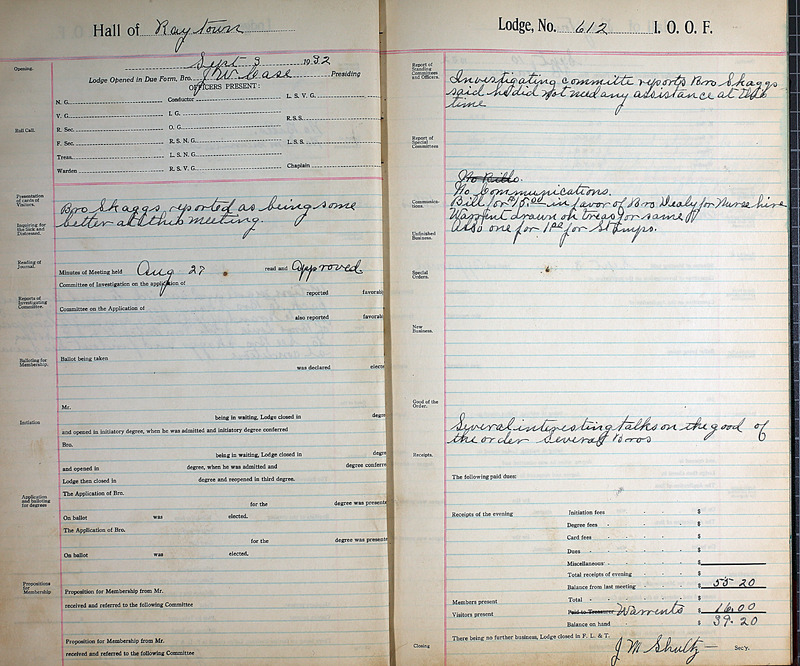 Hall of Raytown
Sept 3 1932
Opening.
Lodge Opened in Due Form, Bro. J W Case Presiding
OFFICERS PRESENT:
N. G. Conductor L. S. V. G.
V. G. I. G. R. S. S.
Roll Call.
R. Sec. O. G.
F. Sec. R. S. N. G. L. S. S.
Treas. L. S. N. G.
Warden R. S. V. G. Chaplain
Presentation of cards of Visitors.
Bro Skaggs reported as being some
better at this meeting.
Inquiring for the Sick and Distressed.
Reading of Journal.
Minutes of Meeting held Aug 27 read and Approved
Committee of Investigation on the application of
reported favorab
Reports of Investigating Committee.
Committee on the Application of
also reported favorab
Balloting for Membership.
Ballot being taken
was declared electe
Mr.
being in waiting, Lodge closed in degre
Initiation
and opened in initiatory degree, when he was admitted and initiatory degree conferred
Bro.
being in waiting, Lodge closed in degre
and opened in degree, when he was admitted and degree conferre
Lodge then closed in degree and reopened in third degree.
Application and balloting for degrees
The Application of Bro.
for the degree was presente
On ballot was elected.
The Application of Bro.
for the degree was presente
On ballot was elected.
Propositions for Membership
Proposition for Membership from Mr.
received and referred to the following Committee
Proposition for Membership from Mr.
received and referred to the following Committee
Lodge, No. 612 I. O. O. F.
Report of Standing Committees and Officers.
Investigating committe reports Bro Skaggs
said he did not need any assistance at this
time
Report of Special Committees
No Bills.
No Communications.
Communications.
Bill for $15.00 in favor of Bro Dealy for Nurse hire
Warrent drawn on treas for same
Unfinished Business.
Also one for 1.00 for Stamps.
Special Orders.
New Business.
Good of the Order.
Several interesting talks on the good of
the order Several Bros
Receipts.
The following paid dues:
Receipts of the evening Initiation fees $
Degree fees $
Card fees $
Dues $
Miscellaneous $
Total receipts of evening $
Balance from last meeting $ 55 20
Members present Total $
Visitors present Paid to Treasurer Warrents $ 16.00
Balance on hand $ 39.20
There being no further business, Lodge closed in F. L. & T.
Closing J M Shultz Sec'y.